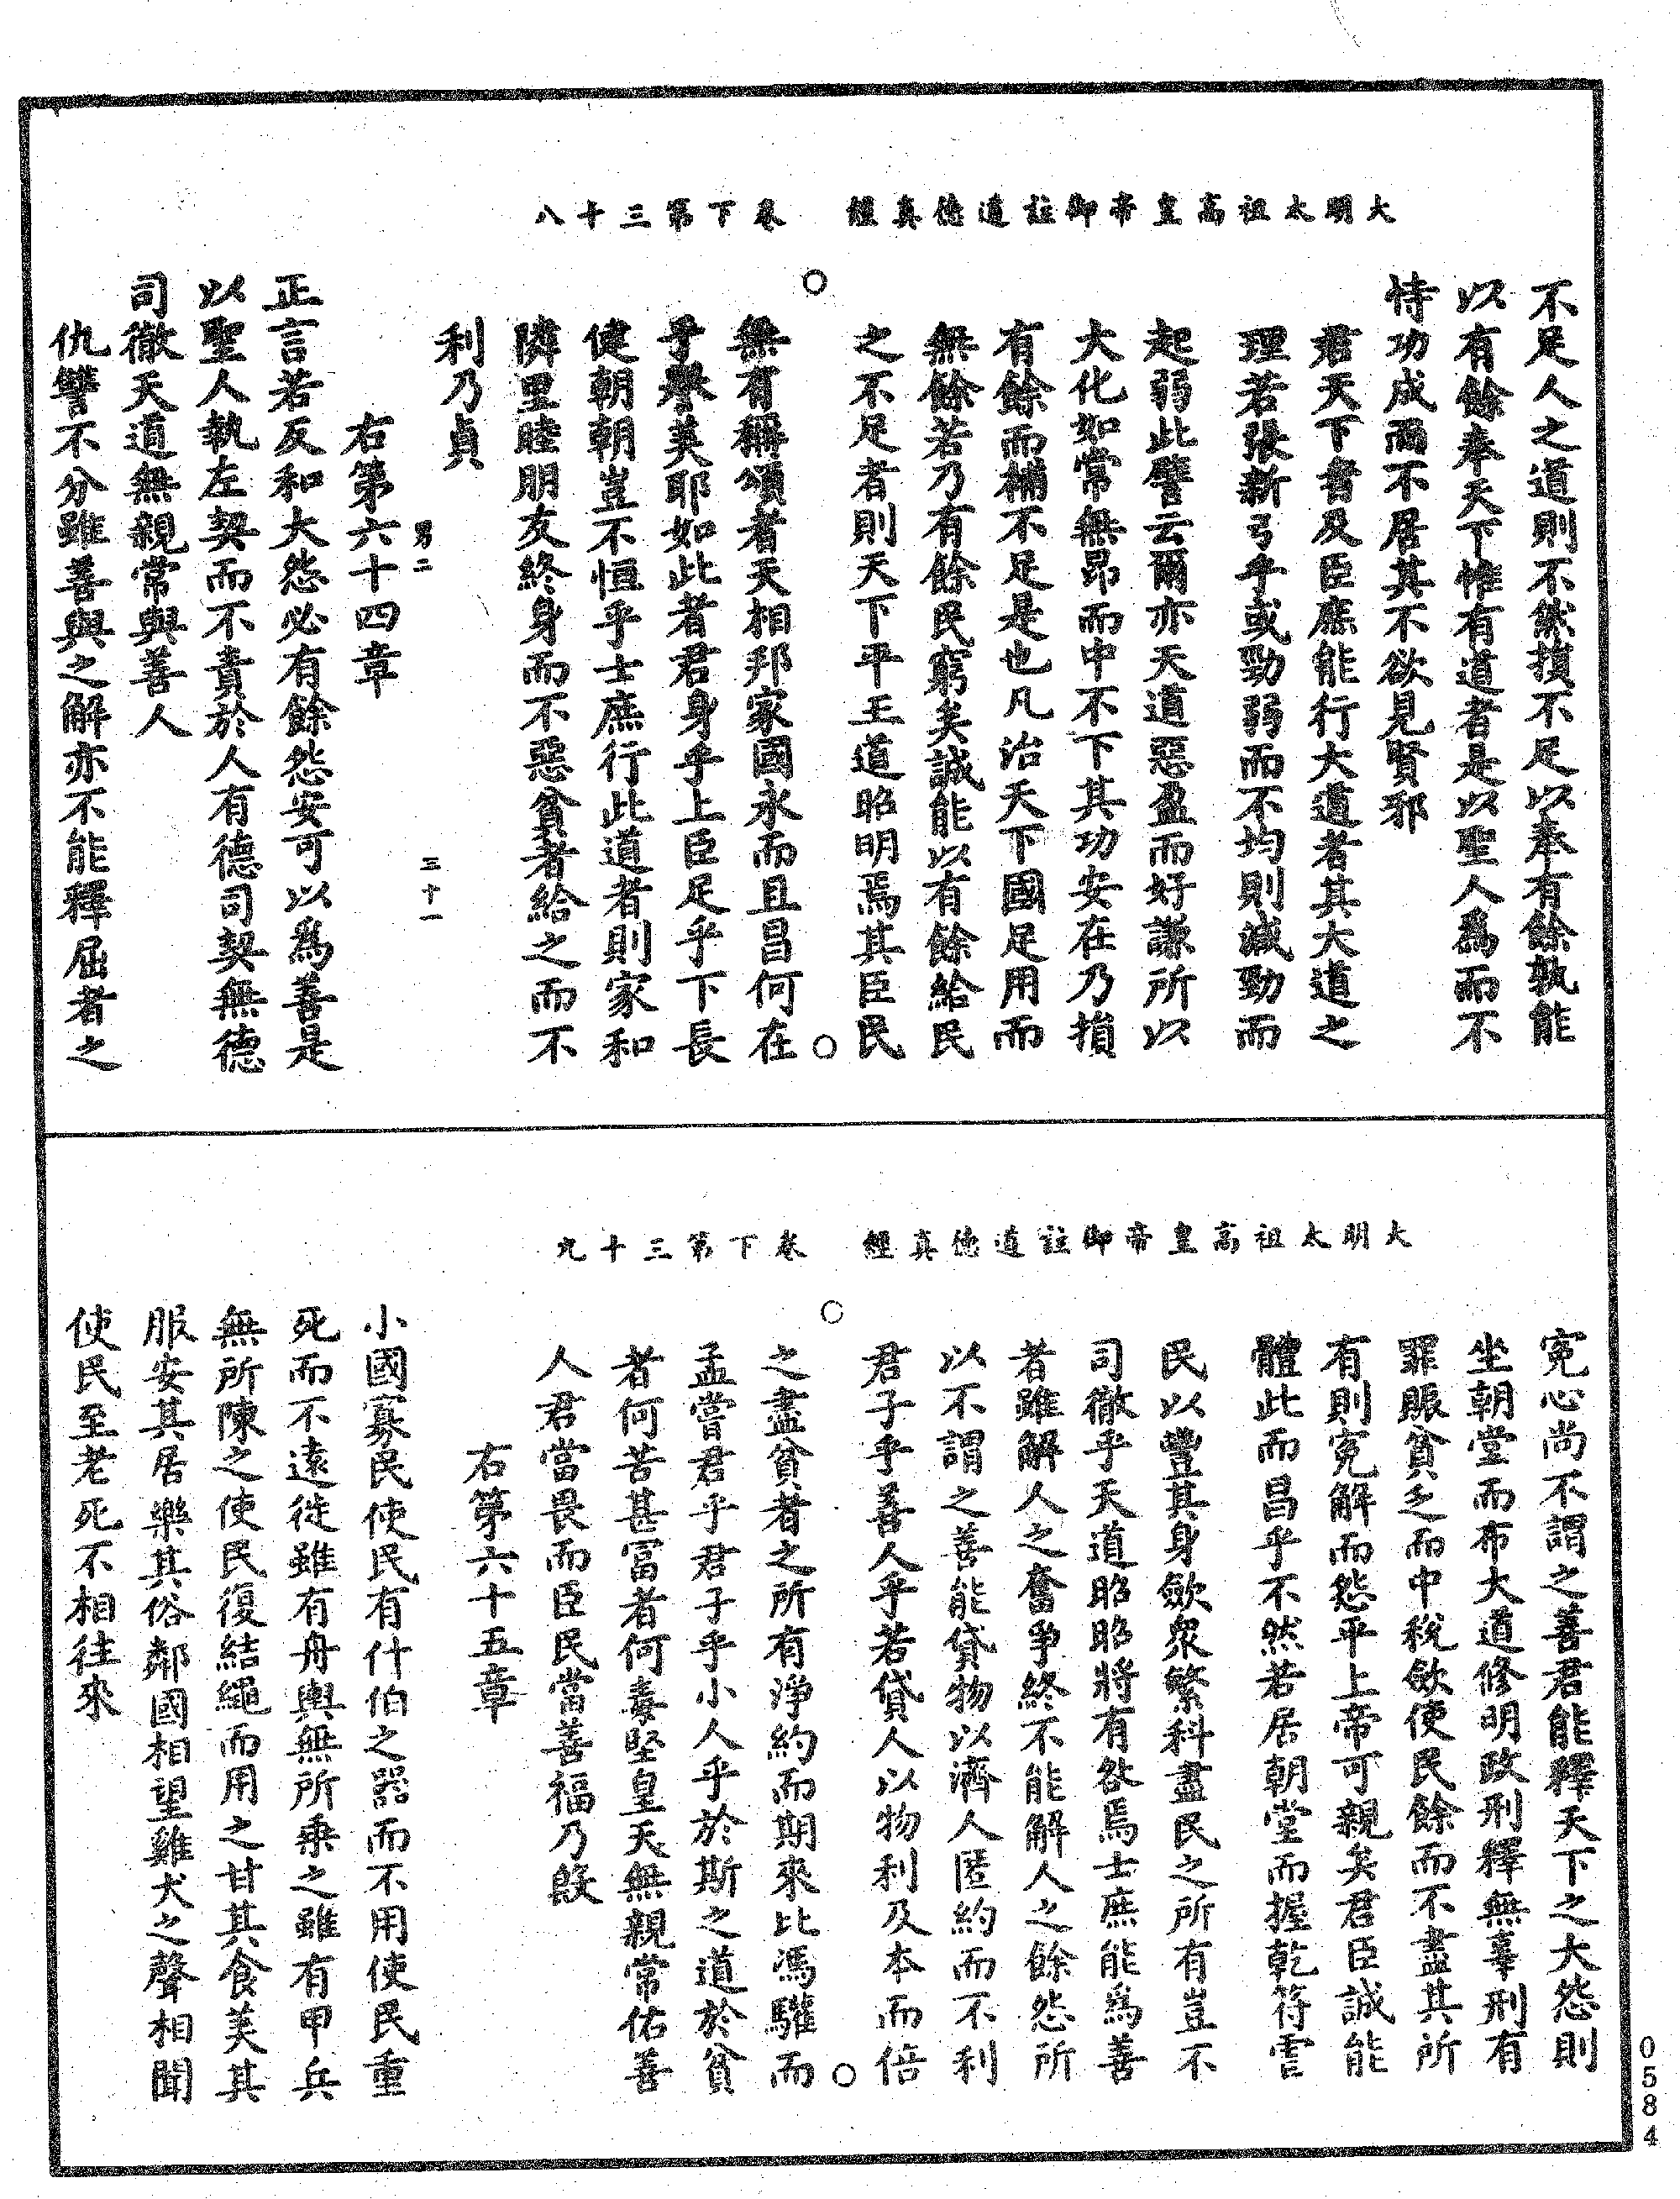 大明太祖高皇帝御註道德真經　卷下第三十八
不足人之道則不然損不足以奉有餘孰能
以有餘奉天下惟有道者是以聖人為而不
恃功成而不居其不欲見賢邪
君天下者及臣庶能行大道者其大道之
理若張新弓乎或勁弱而不均則減勁而
起弱此譬云爾亦天道惡盈而好謙所以
大化如常無昂而中不下其功安在乃損
有餘而補不足是也凡治天下國足用而
無餘若乃有餘民窮矣誠能以有餘給民
之不足者則天下平王道昭明焉其臣民
無有稱頌者天相邦家國永而且昌何在
乎譽美耶如此者君身乎上臣足乎下長
健朝朝豈不恒乎士庶行此道者則家和
隣里睦朋友終身而不惡貧者給之而不
利乃貞
男二　三十一
右第六十四章
正言若反和大怨必有餘怨安可以為善是
以聖人執左契而不責於人有德司契無德
司徹天道無親常與善人
仇讐不分雖善與之解亦不能釋屈者之
大明太祖高皇帝御註道德真經　卷下第三十九
冤心尚不謂之善君能釋天下之大怨則
坐朝堂而布大道修明政刑釋無辜刑有
罪賑貧乏而中稅斂使民餘而不盡其所
有則冤解而怨平上帝可親矣君臣誠能
體此而昌乎不然若居朝堂而握乾符雪
民以豐其身斂衆繁科盡民之所有豈不
司徹乎天道昭昭將有咎焉士庶能為善
者雖解人之奮爭終不能解人之餘怨所
以不謂之善能貸物以濟人匿約而不利
君子乎善人乎若貸人以物利及本而倍
之盡貧者之所有淨約而期來比馮驩而
孟嘗君乎君子乎小人乎於斯之道於貧
者何苦甚冨者何毒堅皇天無親常佑善
人君當畏而臣民當善福乃啟
右第六十五章
小國寡民使民有什伯之器而不用使民重
死而不遠徙雖有舟輿無所乘之雖有甲兵
無所陳之使民復結繩而用之甘其食美其
服安其居樂其俗鄰國相望雞犬之聲相聞
使民至老死不相往來
0584